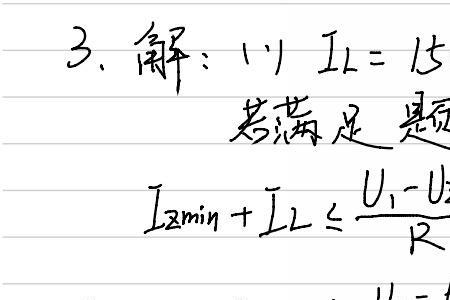 3. 解: (1) I_L = 15
若满足题
I_zmin + I_L ≤ (U_1 - U_z)/R